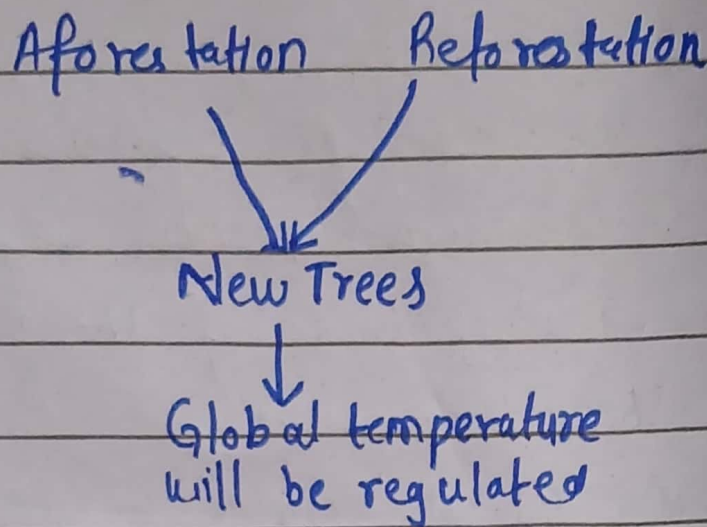 Aforestation Reforestation
New Trees
Global temperature
will be regulated